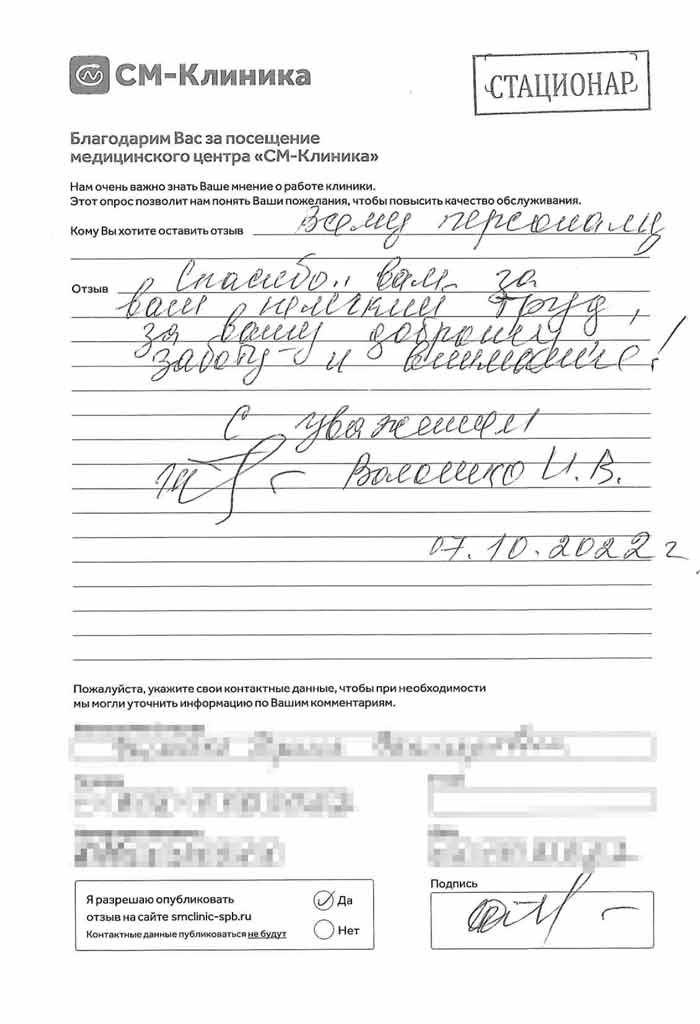 СМ-Клиника
СТАЦИОНАР
Благодарим Вас за посещение
медицинского центра «СМ-Клиника»
Нам очень важно знать Ваше мнение о работе клиники.
Этот опрос позволит нам понять Ваши пожелания, чтобы повысить качество обслуживания.
Кому Вы хотите оставить отзыв Всему персоналу
Отзыв Спасибо вам за
ваш нелегкий труд,
за вашу доброту,
заботу и внимание!
С уважением
Волошко И.В.
07.10.2022 г
Пожалуйста, укажите свои контактные данные, чтобы при необходимости
мы могли уточнить информацию по Вашим комментариям.
Я разрешаю опубликовать
отзыв на сайте smclinic-spb.ru
Контактные данные публиковаться не будут
Да
Нет
Подпись